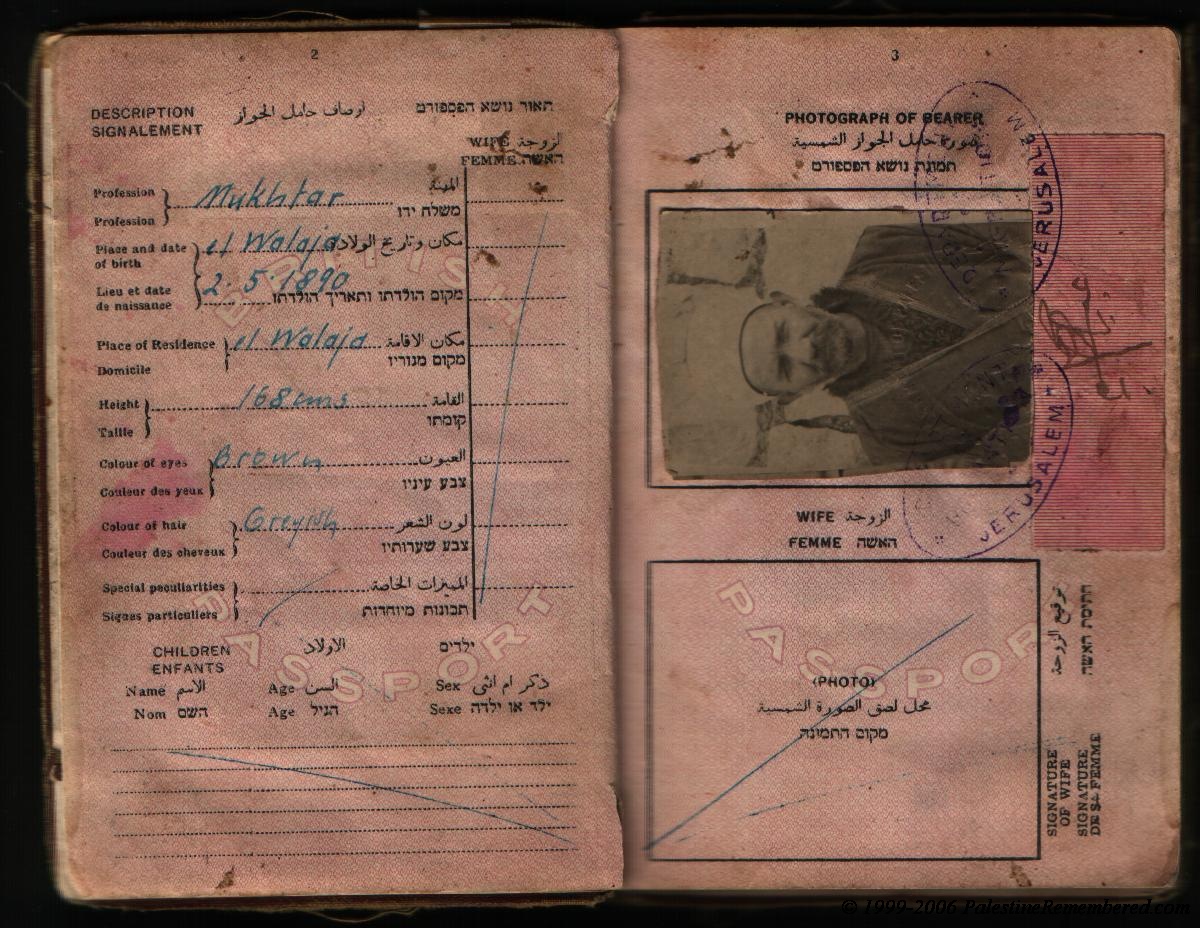 2
DESCRIPTION اوصاف حامل الجواز תאור נושא הפספורט
SIGNALEMENT
WIFE لزوجة
FEMME האשה
Profession Mukhtar المهنة
Profession משלח ידו
Place and date of birth el Walaja مكان وتاريخ الولادة
Lieu et date de naissance 2.5.1890 מקום הולדתו ותאריך הולדתו
BRITISH
Place of Residence el Walaja مكان الاقامة
Domicile מקום מגוריו
Height 168 cms القامة
Taille קומתו
Colour of eyes Brown العيون
Couleur des yeux צבע עיניו
Colour of hair Greyish لون الشعر
Couleur des cheveux צבע שערותיו
Special peculiarities المميزات الخاصة
Signes particuliers תכונות מיוחדות
PASSPORT
CHILDREN الاولاد ילדים
ENFANTS
Name الاسم Age السن Sex ذكر ام انثى
Nom השם Age הגיל Sexe ילד או ילדה
3
PHOTOGRAPH OF BEARER
صورة حامل الجواز الشمسية
תמונת נושא הפספורט
JERUSALEM
JERUSALEM
WIFE الزوجة
FEMME האשה
PASSPORT
(PHOTO)
محل لصق الصورة الشمسية
מקום התמונה
توقيع الزوجة
חתימת האשה
SIGNATURE
OF WIFE
SIGNATURE
DE SA FEMME
© 1999-2006 PalestineRemembered.com